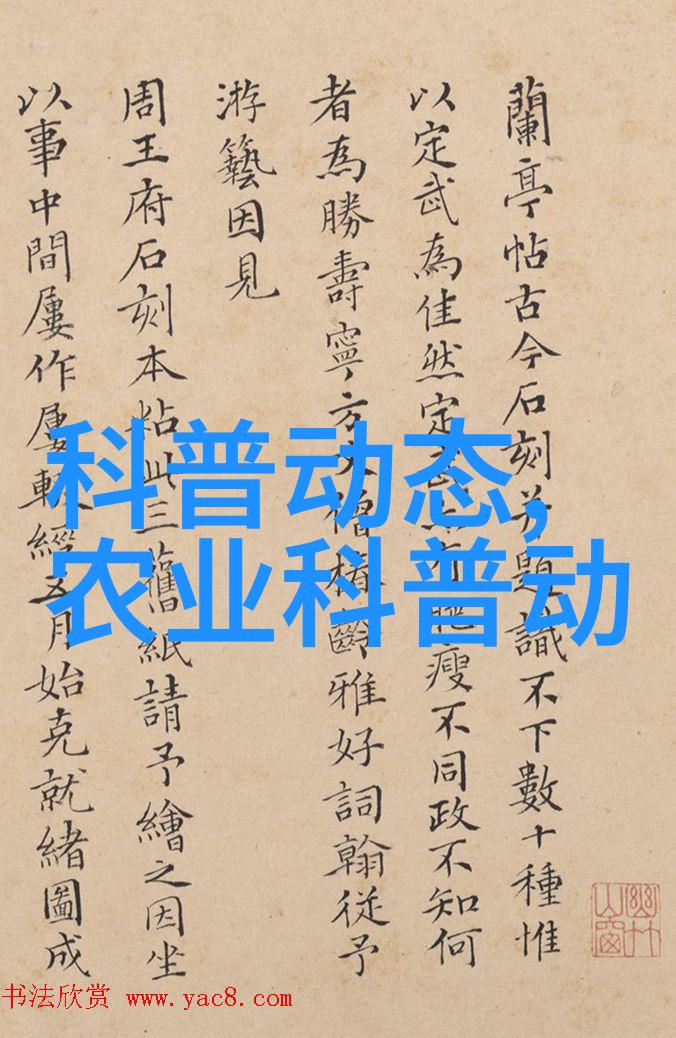 蘭亭帖古今石刻并題識不下數十種惟
以定武為佳然定武瘦不同政不知何
者為勝壽寧方丈僧椿齡雅好詞翰從予
游藝因見
周王府石刻本粘此三舊紙請予繪之因坐
以事中間屢作屢輟經五月始克就緒圖成
科普动态,
农业科普动
书法欣赏 www.yac8.com